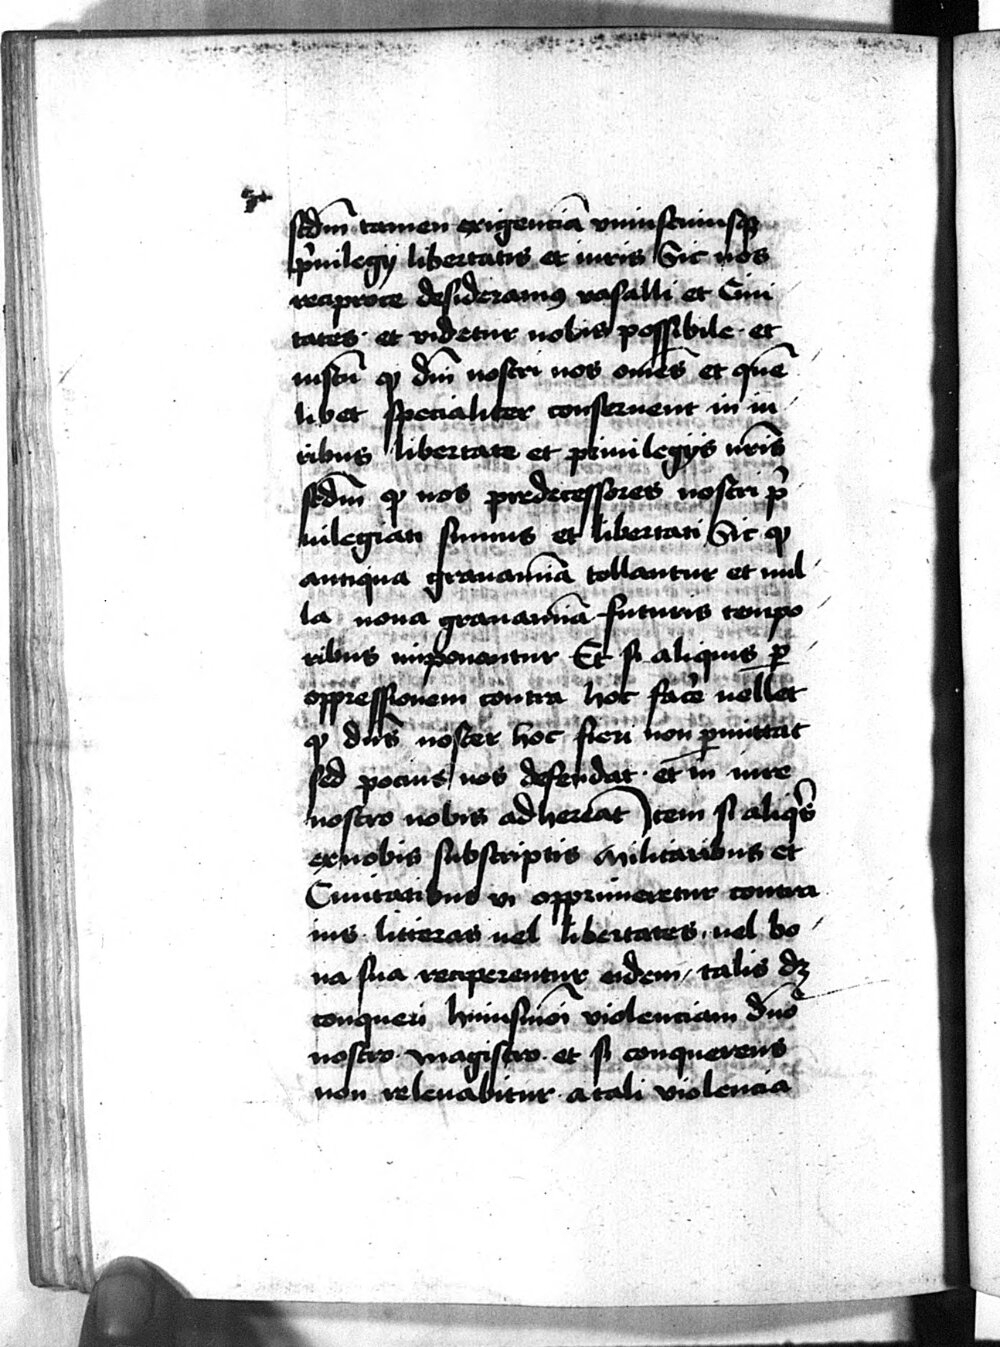 scdm̄ tamen exigenciā vniuscuiusqꝫ
p̄uilegij libertatis et iuris Sic nos
reciproce desideramꝰ vasalli et Ciui
tates · et videtur nobis possibile · et
iustū ꝙ dn̄i nostri nos om̄es et quē
libet specialiter conseruent in iu
ribus libertate et priuilegijs nr̄is
scdm̄ ꝙ nos predecessores nostri p̄
uilegiati sumus et libertati Sic ꝙ
antiqua grauamīa tollantur et nul
la noua grauamīa futuris tempo
ribus imponantur Et si aliquis ꝑ
oppressionem contra hoc facē uellet
ꝙ dn̄s noster hoc fieri non ꝑmittat
sed pocius nos defendat · et in iure
nostro nobis adhereāt Item si aliqͥs
ex nobis subscriptis Militaribus et
Ciuitatibus vi opprimeretur contra
ius litteras uel libertates, uel bo
na sua reciperentur eidem, talis dꝫ
conqueri huiusmōi violenciam dn̄o
nostro magistro · et si conquerens
non releuabitur a tali violencia